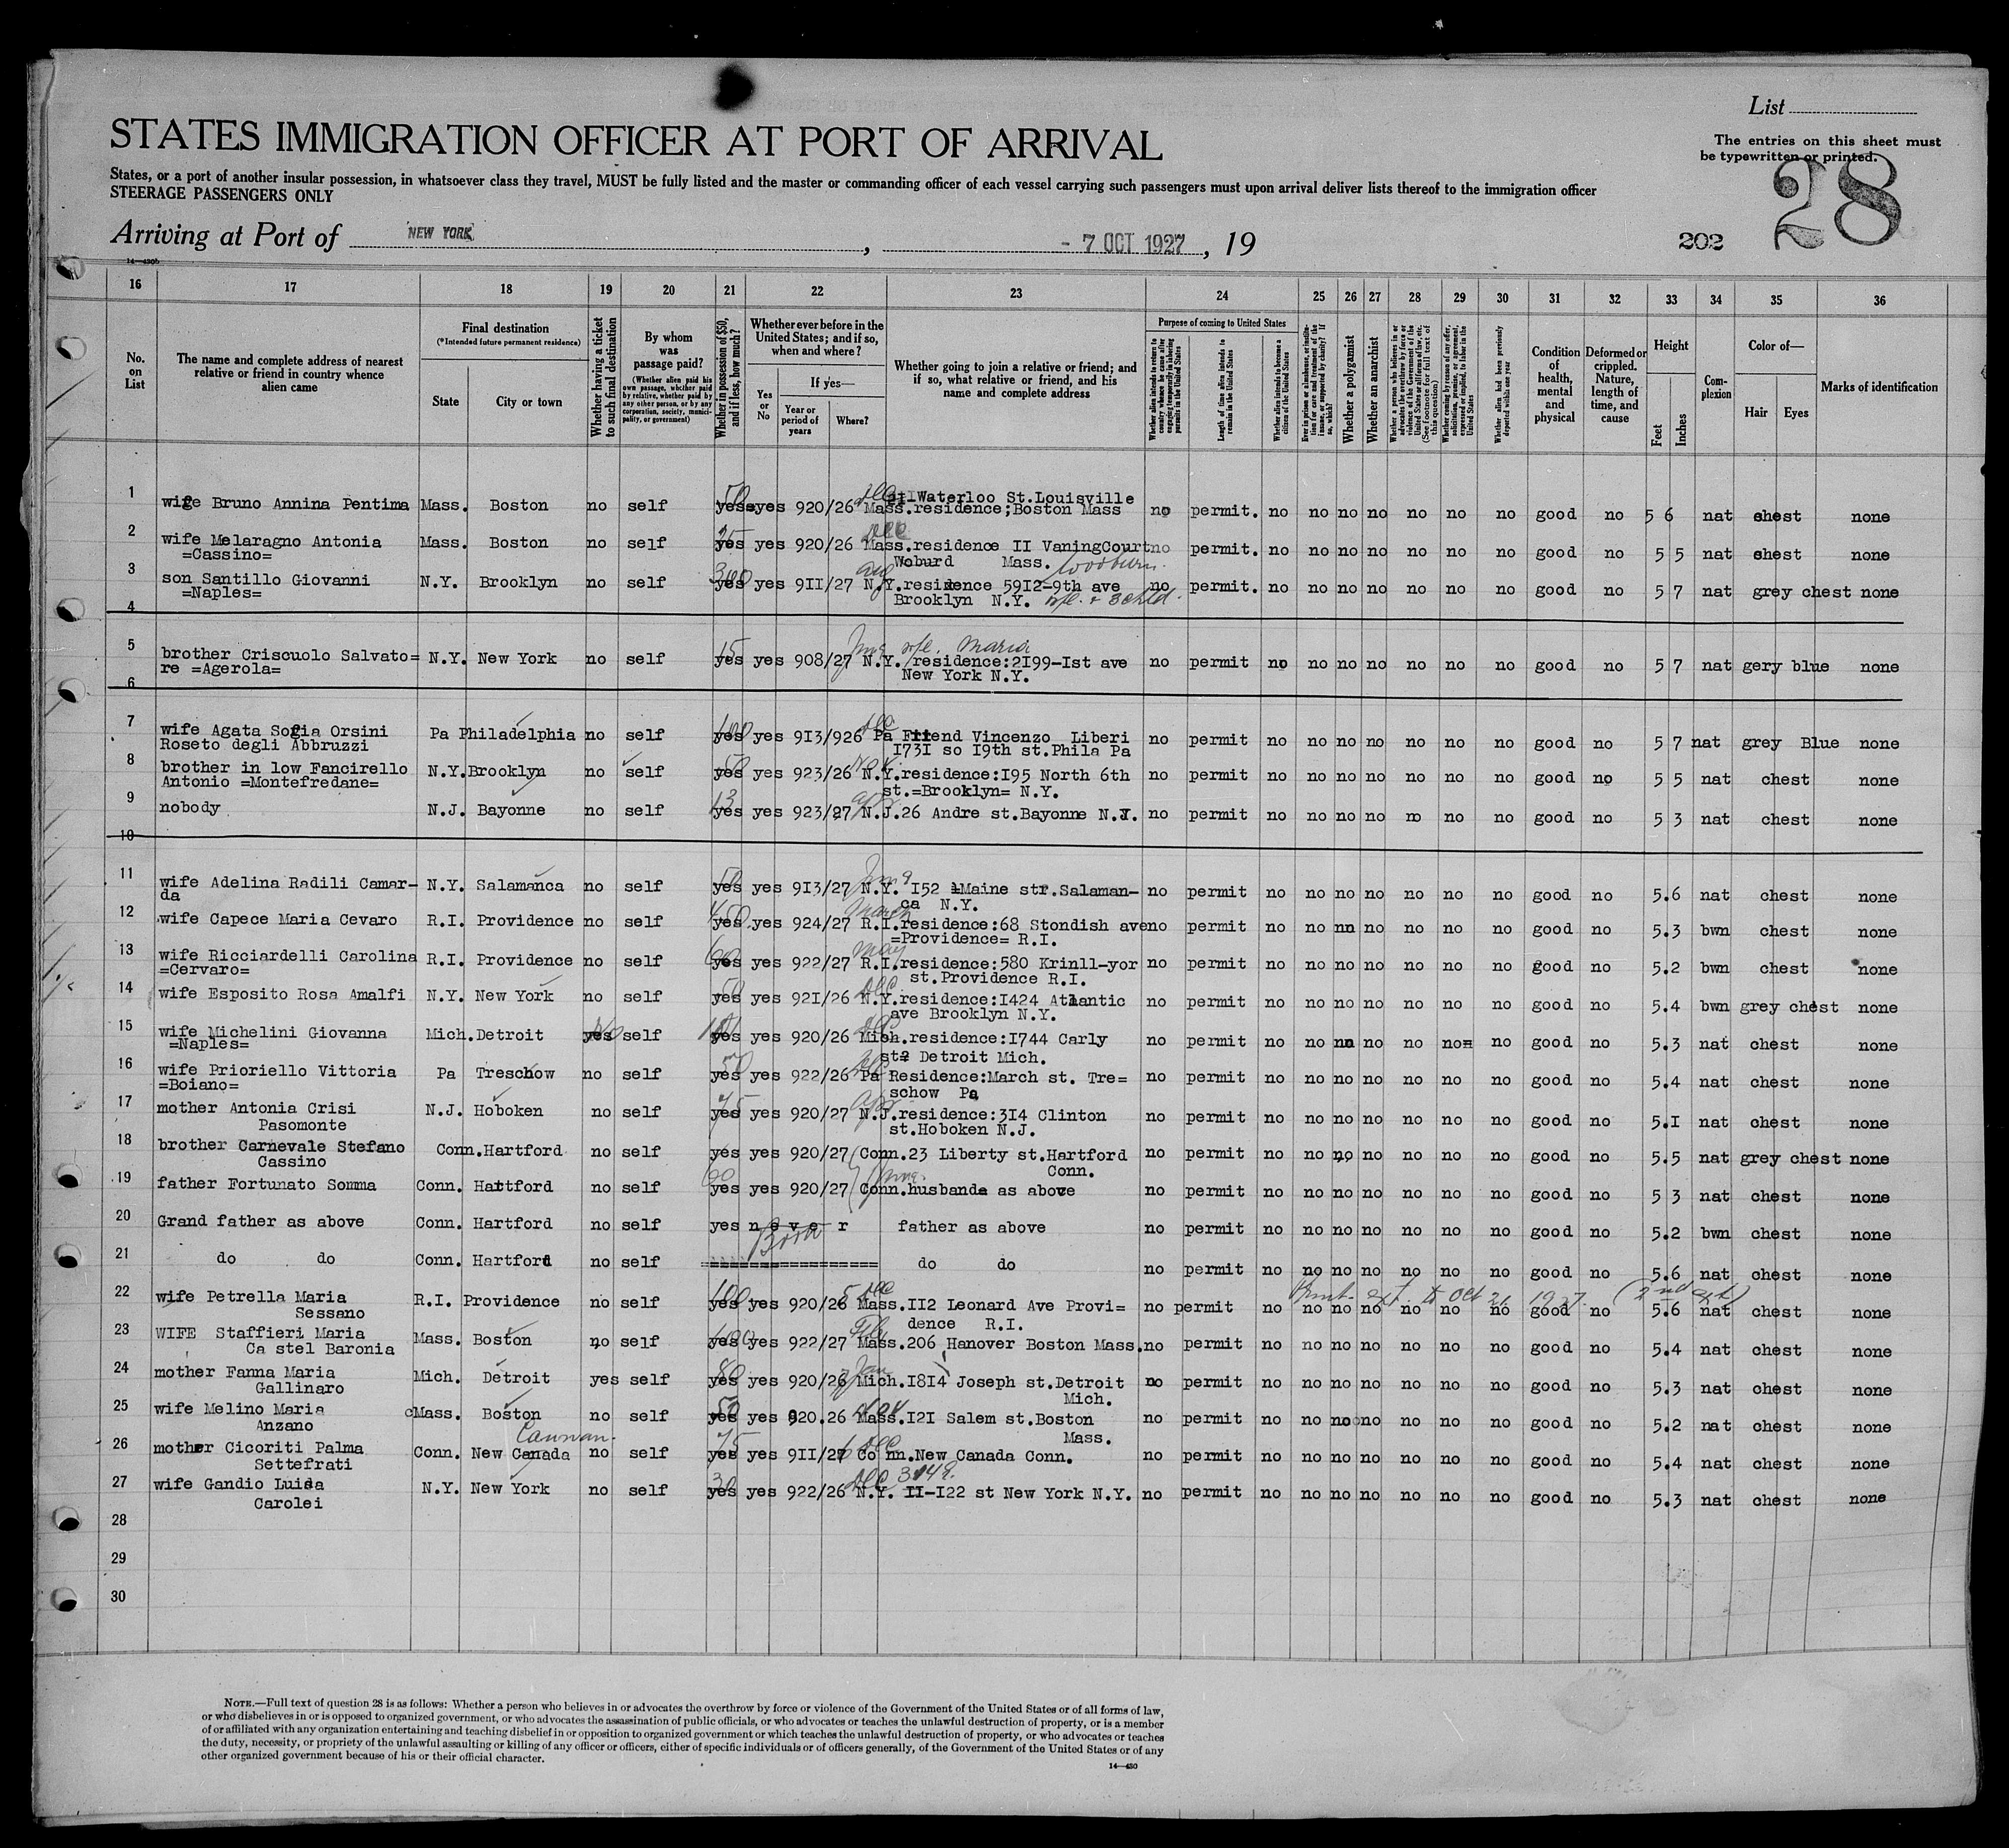 List
STATES IMMIGRATION OFFICER AT PORT OF ARRIVAL
The entries on this sheet must
be typewritten or printed.
States, or a port of another insular possession, in whatsoever class they travel, MUST be fully listed and the master or commanding officer of each vessel carrying such passengers must upon arrival deliver lists thereof to the immigration officer
STEERAGE PASSENGERS ONLY
28
Arriving at Port of NEW YORK, - 7 OCT 1927, 19
202
14-430b
16 17 18 19 20 21 22 23 24 25 26 27 28 29 30 31 32 33 34 35 36
No. on List
The name and complete address of nearest relative or friend in country whence alien came
Final destination
(*Intended future permanent residence)
State City or town
Whether having a ticket to such final destination
By whom was passage paid?
(Whether alien paid his own passage, whether paid by relative, whether paid by any other person, or by any corporation, society, municipality, or government)
Whether in possession of $50, and if less, how much?
Whether ever before in the United States; and if so, when and where?
Yes or No
If yes—
Year or period of years
Where?
Whether going to join a relative or friend; and if so, what relative or friend, and his name and complete address
Purpose of coming to United States
Whether alien intends to return to country whence he came after engaging temporarily in laboring pursuits in the United States
Length of time alien intends to remain in the United States
Whether alien intends to become a citizen of the United States
Ever in prison or almshouse, or institution for care and treatment of the insane, or supported by charity? If so, which?
Whether a polygamist
Whether an anarchist
Whether a person who believes in or advocates the overthrow by force or violence of the Government of the United States or all forms of law, etc. (See footnote for full text of this question)
Whether coming by reason of any offer, solicitation, promise, or agreement, expressed or implied, to labor in the United States
Whether alien had been previously deported within one year
Condition of health, mental and physical
Deformed or crippled. Nature, length of time, and cause
Height
Feet Inches
Complexion
Color of—
Hair Eyes
Marks of identification
1 wife Bruno Annina Pentima Mass. Boston no self 50 yes yes 920/26 Dec Mass. 21-Waterloo St.Louisville
residence;Boston Mass no permit. no no no no no no no good no 5 6 nat chest none
2 wife Melaragno Antonia Mass. Boston no self 25 yes yes 920/26 Dec Mass.residence II VaningCourt no permit. no no no no no no no good no 5 5 nat chest none
=Cassino= Woburd Mass. Woodburn.
3 son Santillo Giovanni N.Y. Brooklyn no self 300 yes yes 9II/27 Aug N.Y.residence 59I2-9th ave no permit. no no no no no no no good no 5 7 nat grey chest none
=Naples= Brooklyn N.Y. wfe. + 3 chld.
4
5 brother Criscuolo Salvato= N.Y. New York no self 15 yes yes 908/27 N.Y. wfe. Maria
re =Agerola= residence:2I99-Ist ave no permit no no no no no no no good no 5 7 nat gery blue none
New York N.Y.
6
7 wife Agata Sofia Orsini Pa Philadelphia no self 100 yes yes 9I3/926 Dec Pa Friend Vincenzo Liberi no permit no no no no no no no good no 5 7 nat grey Blue none
Roseto degli Abbruzzi I73I so I9th st.Phila Pa
8 brother in low Fancirello N.Y.Brooklyn no self 50 yes yes 923/26 Nov. N.Y.residence:I95 North 6th no permit no no no no no no no good no 5 5 nat chest none
Antonio =Montefredane= st.=Brooklyn= N.Y.
9 nobody N.J. Bayonne no self 13 yes yes 923/27 apr N.J.26 Andre st.Bayonne N.J. no permit no no no no no no no good no 5 3 nat chest none
10
11 wife Adelina Radili Camar- N.Y. Salamanca no self 50 yes yes 9I3/27 N.Y. I52 Maine str.Salaman- no permit no no no no no no no good no 5.6 nat chest none
da ca N.Y.
12 wife Capece Maria Cevaro R.I. Providence no self 450 yes yes 924/27 March R.I.residence:68 Stondish ave no permit no no nn no no no no good no 5.3 bwn chest none
=Providence= R.I.
13 wife Ricciardelli Carolina R.I. Providence no self 60 yes yes 922/27 May R.I.residence:580 Krinll-yor no permit no no no no no no no good no 5.2 bwn chest none
=Cervaro= st.Providence R.I.
14 wife Esposito Rosa Amalfi N.Y. New York no self 50 yes yes 92I/26 Dec N.Y.residence:I424 Atlantic no permit no no no no no no no good no 5.4 bwn grey chest none
ave Brooklyn N.Y.
15 wife Michelini Giovanna Mich.Detroit yes No self yes yes 920/26 Dec Mich.residence:I744 Carly no permit no no no no no no= no good no 5.3 nat chest none
=Naples= st. Detroit Mich.
16 wife Prioriello Vittoria Pa Treschow no self 50 yes yes 922/26 Dec Pa Residence:March st. Tre= no permit no no no no no no no good no 5.4 nat chest none
=Boiano= schow Pa
17 mother Antonia Crisi N.J. Hoboken no self 75 yes yes 920/27 Apr N.J.residence:3I4 Clinton no permit no no no no no no no good no 5.I nat chest none
Pasomonte st.Hoboken N.J.
18 brother Carnevale Stefano Conn.Hartford no self yes yes 920/27 Conn.23 Liberty st.Hartford no permit no no no no no no no good no 5.5 nat grey chest none
Cassino Conn.
19 father Fortunato Somma Conn. Hartford no self 60 yes yes 920/27 Conn.husband as above no permit no no no no no no no good no 5 3 nat chest none
20 Grand father as above Conn. Hartford no self yes n e v e r Born father as above no permit no no no no no no no good no 5.2 bwn chest none
21 do do Conn. Hartford no self ================= do do no permit no no no no no no no good no 5.6 nat chest none
Permit ext. to Oct 21 1927. (2nd ext)
22 wife Petrella Maria R.I. Providence no self 100 yes yes 920/26 5 Dec Mass.II2 Leonard Ave Provi= no permit no no no no no no no good no 5.6 nat chest none
Sessano dence R.I.
23 WIFE Staffieri Maria Mass. Boston no self 400 yes yes 922/27 Feb Mass.206 Hanover Boston Mass. no permit no no no no no no no good no 5.4 nat chest none
Ca stel Baronia
24 mother Fanna Maria Mich. Detroit yes self 80 yes yes 920/26 Jan Mich.I8I4 Joseph st.Detroit no permit no no no no no no no good no 5.3 nat chest none
Gallinaro Mich.
25 wife Melino Maria Mass. Boston no self 50 yes yes 920.26 Nov Mass.I2I Salem st.Boston no permit no no no no no no no good no 5.2 nat chest none
Anzano Mass.
Cannan.
26 mother Cicoriti Palma Conn. New Canada no self 75 yes yes 9II/27 6 Dec Co nn.New Canada Conn. no permit no no no no no no no good no 5.4 nat chest none
Settefrati
27 wife Gandio Luisa N.Y. New York no self 30 yes yes 922/26 Dec 3149. N.Y. II-I22 st New York N.Y. no permit no no no no no no no good no 5.3 nat chest none
Carolei
28
29
30
NOTE.—Full text of question 28 is as follows: Whether a person who believes in or advocates the overthrow by force or violence of the Government of the United States or of all forms of law,
or who disbelieves in or is opposed to organized government, or who advocates the assassination of public officials, or who advocates or teaches the unlawful destruction of property, or is a member
of or affiliated with any organization entertaining and teaching disbelief in or opposition to organized government or which teaches the unlawful destruction of property, or who advocates or teaches
the duty, necessity, or propriety of the unlawful assaulting or killing of any officer or officers, either of specific individuals or of officers generally, of the Government of the United States or of any
other organized government because of his or their official character.
14-430